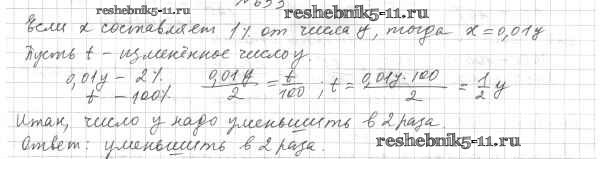 № 653
reshebnik5-11.ru
Если x составляет 1% от числа y, тогда x = 0,01y
Пусть t - изменённое число y.
0,01y - 2%
t - 100%
0,01y/2 = t/100 ; t = 0,01y·100/2 = 1/2 y
Итак, число y надо уменьшить в 2 раза.
Ответ: уменьшить в 2 раза.
reshebnik5-11.ru